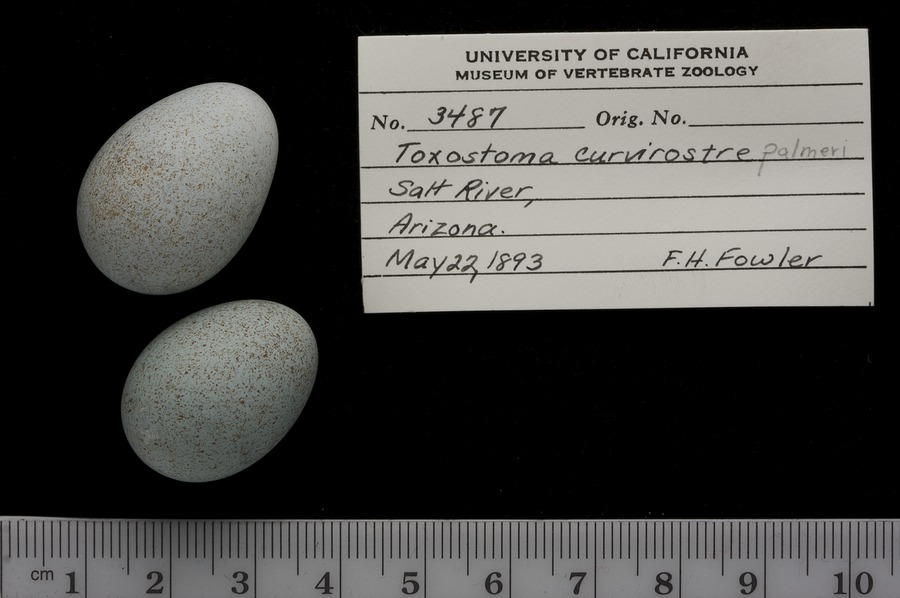 UNIVERSITY OF CALIFORNIA
MUSEUM OF VERTEBRATE ZOOLOGY
No. 3487 Orig. No.
Toxostoma curvirostre palmeri
Salt River,
Arizona.
May 22, 1893 F.H. Fowler
cm 1 2 3 4 5 6 7 8 9 10